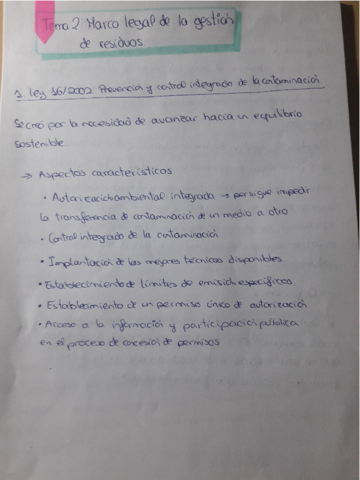 Tema 2 Marco legal de la gestión
de residuos
1. Ley 16/2002 Prevención y control integrado de la contaminación
Se creó por la necesidad de avanzar hacia un equilibrio
sostenible
→ Aspectos característicos
• Autorización ambiental integrada → persigue impedir
la transferencia de contaminación de un medio a otro
• Control integrado de la contaminación
• Implantación de las mejores técnicas disponibles
• Establecimiento de límites de emisión específicos
• Establecimiento de un permiso único de autorización
• Acceso a la información y participación pública
en el proceso de concesión de permisos